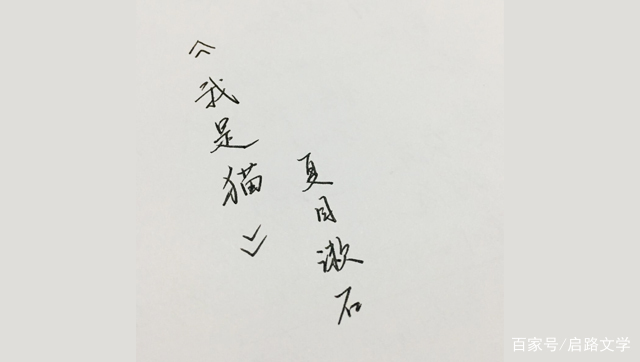 《我是猫》
夏目漱石
百家号/启路文学